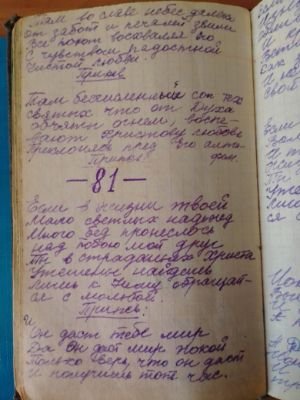 Там во славе небес далека
от забот и печалей земли
Все поют восхваляя Его
с чувством радостной
чистой любви.
Припев
Там бесчисленный сон тех
святых что от Духа
объяты огнем, воспе-
вают Христову любовь
Преклонясь пред Его алта-
Припев. рем.
— 81 —
Если в жизни твоей
Мало светлых надежд
Много бед пронеслось
над тобою мой друг
Ты в страданьях Христа
утешенье найдешь
Лишь к Нему обращай-
ся с мольбой.
Припев:
И
Он даст тебе мир
Да Он даст мир покой
Только верь, что он даст
и получишь тот час.